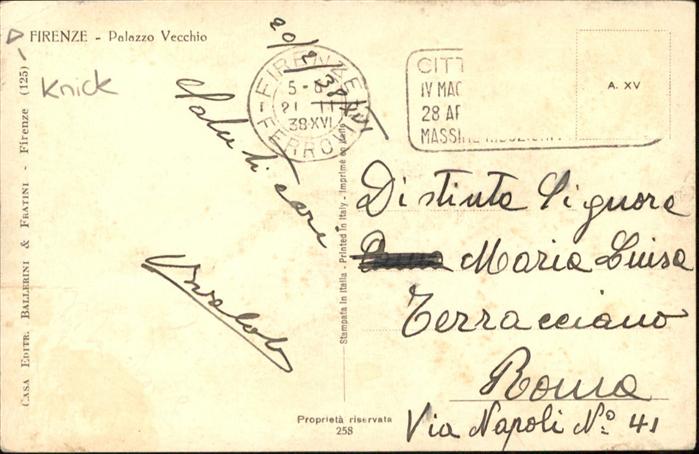 FIRENZE - Palazzo Vecchio
Knick
CASA EDITR. BALLERINI & FRATINI - Firenze (125)
20/2/38 XVI
Saluti cari
FIRENZE
5-
21 II
38·XVI
FERROVIA
CITT
IV MAG
28 AP
MASSIME RIDUZIONI
A. XV
Stampata in Italia - Printed in Italy - Imprimé en Italie
Distinta Signora
Maria Luisa
Terracciano
Roma
Via Napoli Nº 41
Proprietà riservata
258